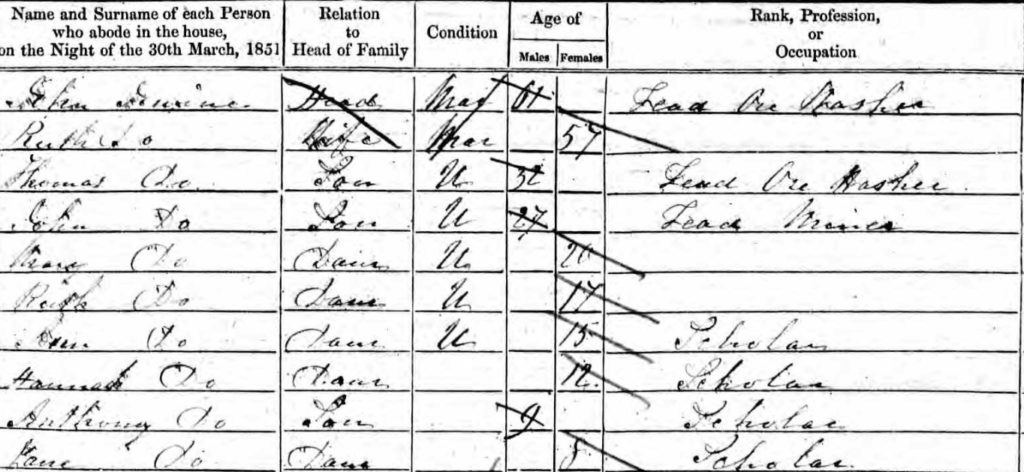 Name and Surname of each Person who abode in the house, on the Night of the 30th March, 1851 Relation to Head of Family Condition Age of Males Females Rank, Profession, or Occupation
John Head Mar 61 Lead Ore Washer
Ruth Do Wife Mar 57
Thomas Do Son U 32 Lead Ore Washer
John Do Son U 27 Lead Miner
Mary Do Daur U 20
Ruth Do Daur U 17
Ann Do Daur U 15 Scholar
Hannah Do Daur 12 Scholar
Anthony Do Son 9 Scholar
Jane Do Daur 8 Scholar